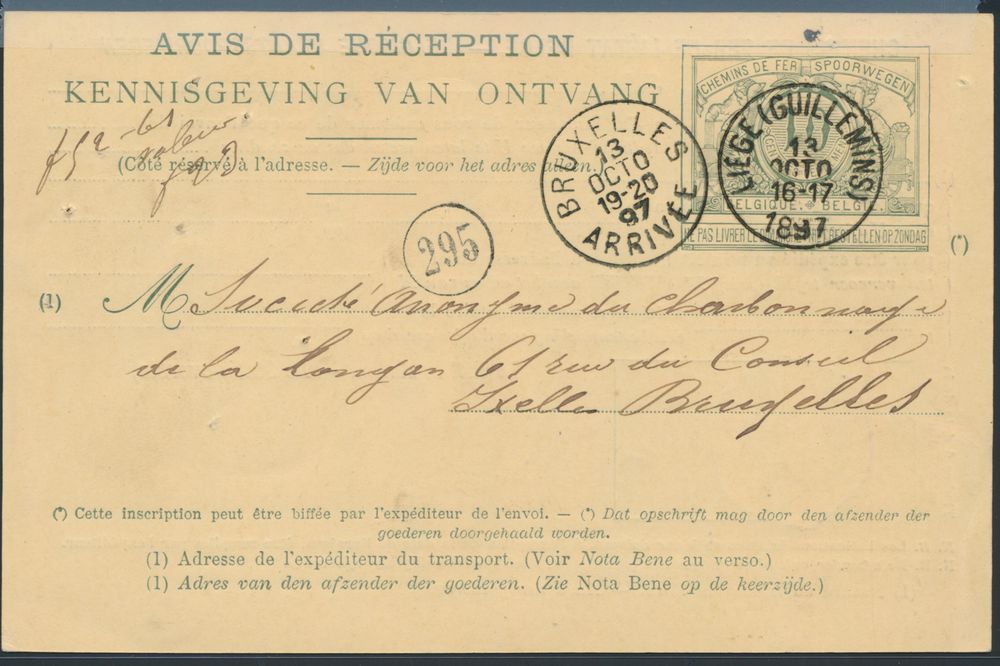 AVIS DE RÉCEPTION
KENNISGEVING VAN ONTVANG
(Côté réservé à l'adresse. — Zijde voor het adres alleen.)
CHEMINS DE FER SPOORWEGEN
BELGIQUE. BELGIE.
NE PAS LIVRER LE BESTELLEN OP ZONDAG
BRUXELLES
13
OCTO
19-20
97
ARRIVÉE
LIEGE (GUILLEMINS)
13
OCTO
16-17
1897
295
(*)
(1) M Société Anonyme du Charbonnage
de la 61 rue du Conseil
Ixelles Bruxelles
(*) Cette inscription peut être biffée par l'expéditeur de l'envoi. — (*) Dat opschrift mag door den afzender der
goederen doorgehaald worden.
(1) Adresse de l'expéditeur du transport. (Voir Nota Bene au verso.)
(1) Adres van den afzender der goederen. (Zie Nota Bene op de keerzijde.)